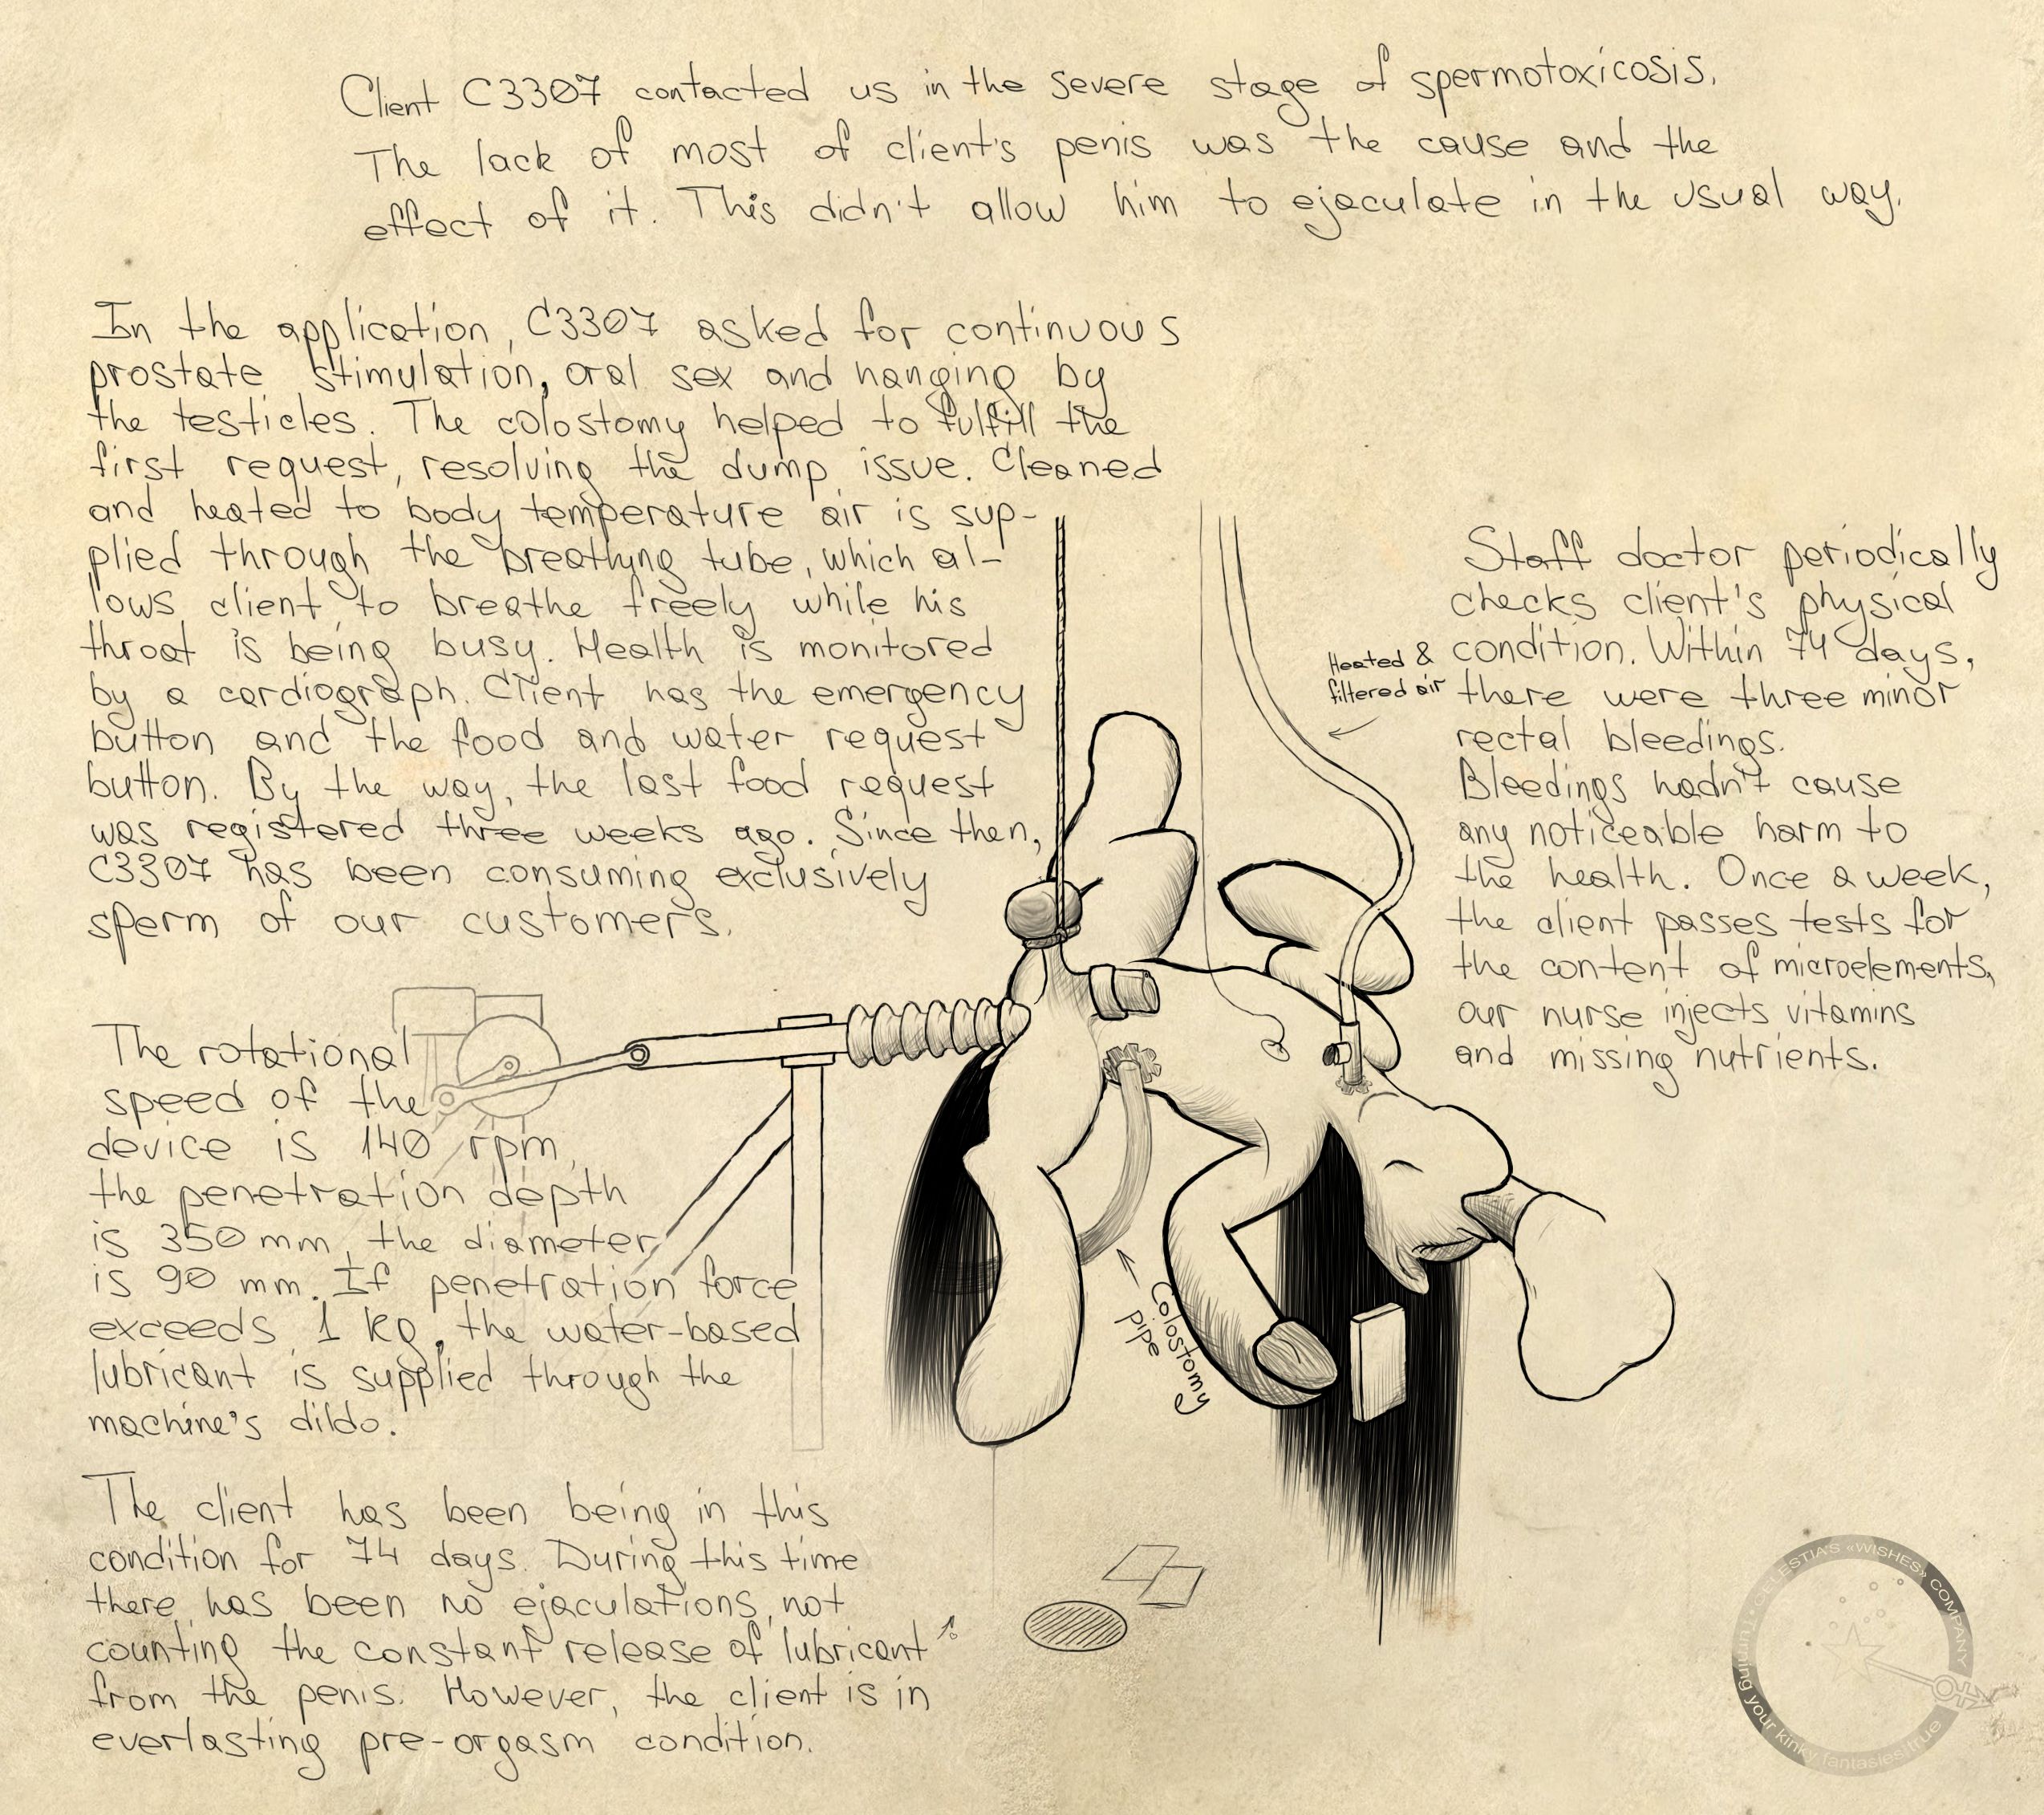 Client C3307 contacted us in the severe stage of spermotoxicosis.
The lack of most of client's penis was the cause and the
effect of it. This didn't allow him to ejaculate in the usual way.
In the application, C3307 asked for continuous
prostate stimulation, oral sex and hanging by
the testicles. The colostomy helped to fulfill the
first request, resolving the dump issue. Cleaned
and heated to body temperature air is sup-
plied through the breathyng tube, which al-
lows client to breathe freely while his
throat is being busy. Health is monitored
by a cardiograph. Client has the emergency
button and the food and water request
button. By the way, the last food request
was registered three weeks ago. Since then,
C3307 has been consuming exclusively
sperm of our customers.
Heated &
filtered air
Staff doctor periodically
checks client's physical
condition. Within 74 days,
there were three minor
rectal bleedings.
Bleedings hadn't cause
any noticeable harm to
the health. Once a week,
the client passes tests for
the content of microelements,
our nurse injects vitamins
and missing nutrients.
The rotational
speed of the
device is 140 rpm,
the penetration depth
is 350 mm, the diameter
is 90 mm. If penetration force
exceeds 1 kg, the water-based
lubricant is supplied through the
machine's dildo.
Colostomy
pipe
The client has been being in this
condition for 74 days. During this time
there has been no ejaculations, not
counting the constant release of lubricant
from the penis. However, the client is in
everlasting pre-orgasm condition.
CELESTIA'S «WISHES» COMPANY
turning your kinky fantasies true